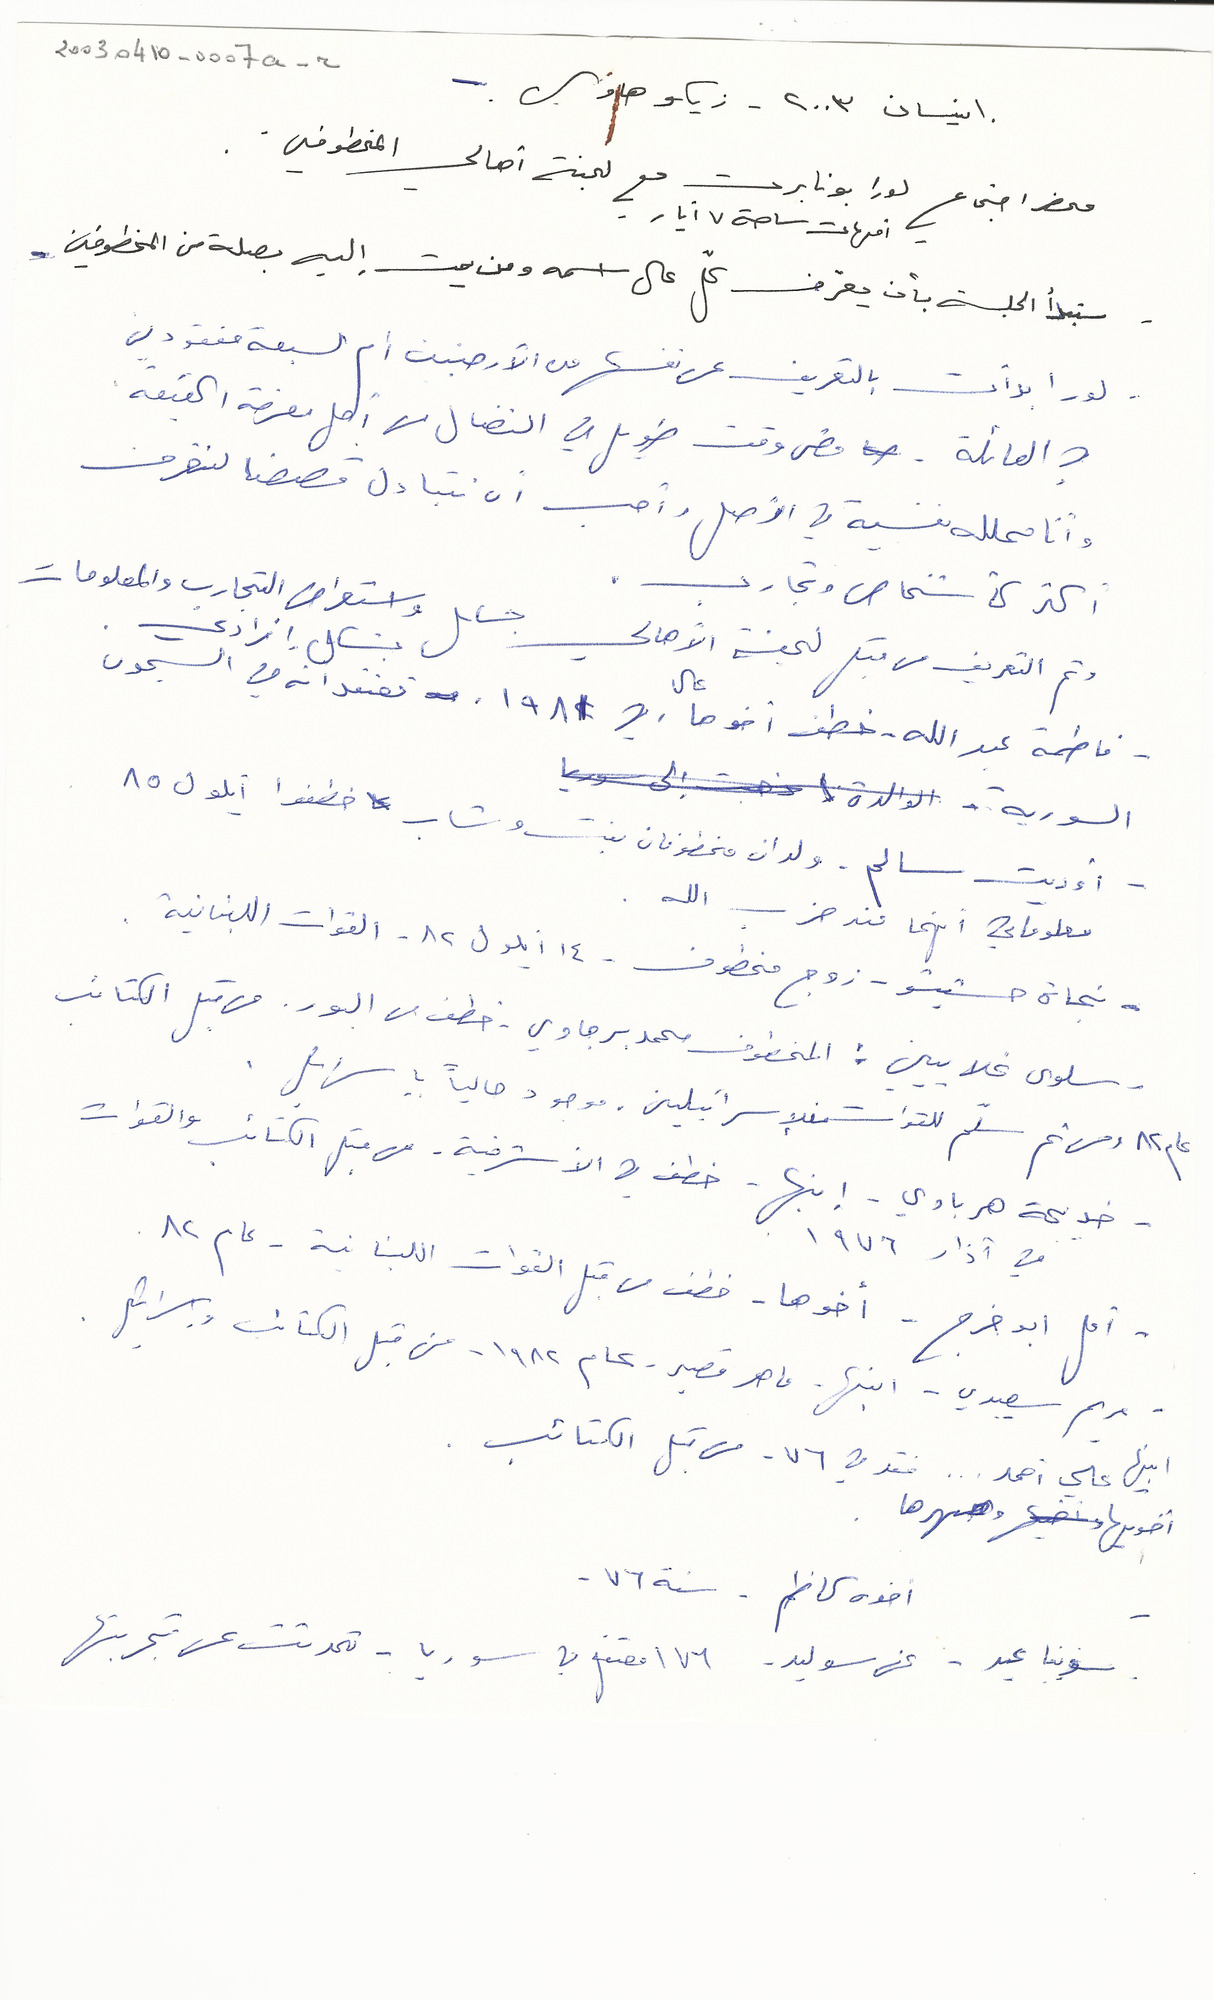 20030410-0007a-r
١٠ نيسان ٢٠٠٣ - زيكو هاوس -
محضر اجتماع لورا بونابرت مع لجنة أهالي المخطوفين.
أمهات ساحة ٧ أيار
- ستبدأ الجلسة بأن يعرّف كلّ عال اسمه ومن يمت إليه بصلة من المخطوفين -
- لورا بدأت بالتعريف عن نفسها من الأرجنتين أم لسبعة مفقودين
في العائلة - مضى وقت طويل في النضال من أجل معرفة الحقيقة
وأنا محللة نفسية في الأصل وأحب أن نتبادل قصصنا لنتعرف
أكثر كأشخاص وتجارب.
وتم التعريف من قبل لجنة الأهالي واستعراض التجارب والمعلومات
بشكل إفرادي.
- فاطمة عبد الله - خطف أخوها علي في ١٩٨. تعتقد انه في السجون
السورية - الوالدة ذهبت إلى سوريا
- أوديت سالم - ولدان مخطوفان بنت وشاب خطفوا أيلول ٨٥
معلوماتي أنهما عند حزب الله.
- نجاة حشيشو - زوج مخطوف - ١٤ أيلول ٨٢ - القوات اللبنانية.
- سلوى غلاييني: المخطوف محمد برجاوي - خطف من البور. من قبل الكتائب
عام ٨٢ ومن ثم سلّم للقوات الإسرائيلية. موجود حالياً بإسرائيل.
- خديجة هرباوي - إبنها - خطف في الأشرفية - من قبل الكتائب والقوات
في آذار ١٩٧٦
- أمل ابو خرج - أخوها - خطف من قبل القوات اللبنانية - عام ٨٢.
- مريم سعيدي - ابنها - ماهر قصير - عام ١٩٨٢ - من قبل الكتائب وإسرائيل.
ابنها علي أحمد ... فقد في ٧٦ - من قبل الكتائب.
أخويها وصهرها.
- اخوه كاظم - سنة ٧٦ -
- سونيا عيد - عن سوليد - ١٧٦ معتقل في سوريا - تحدثت عن تجربتها